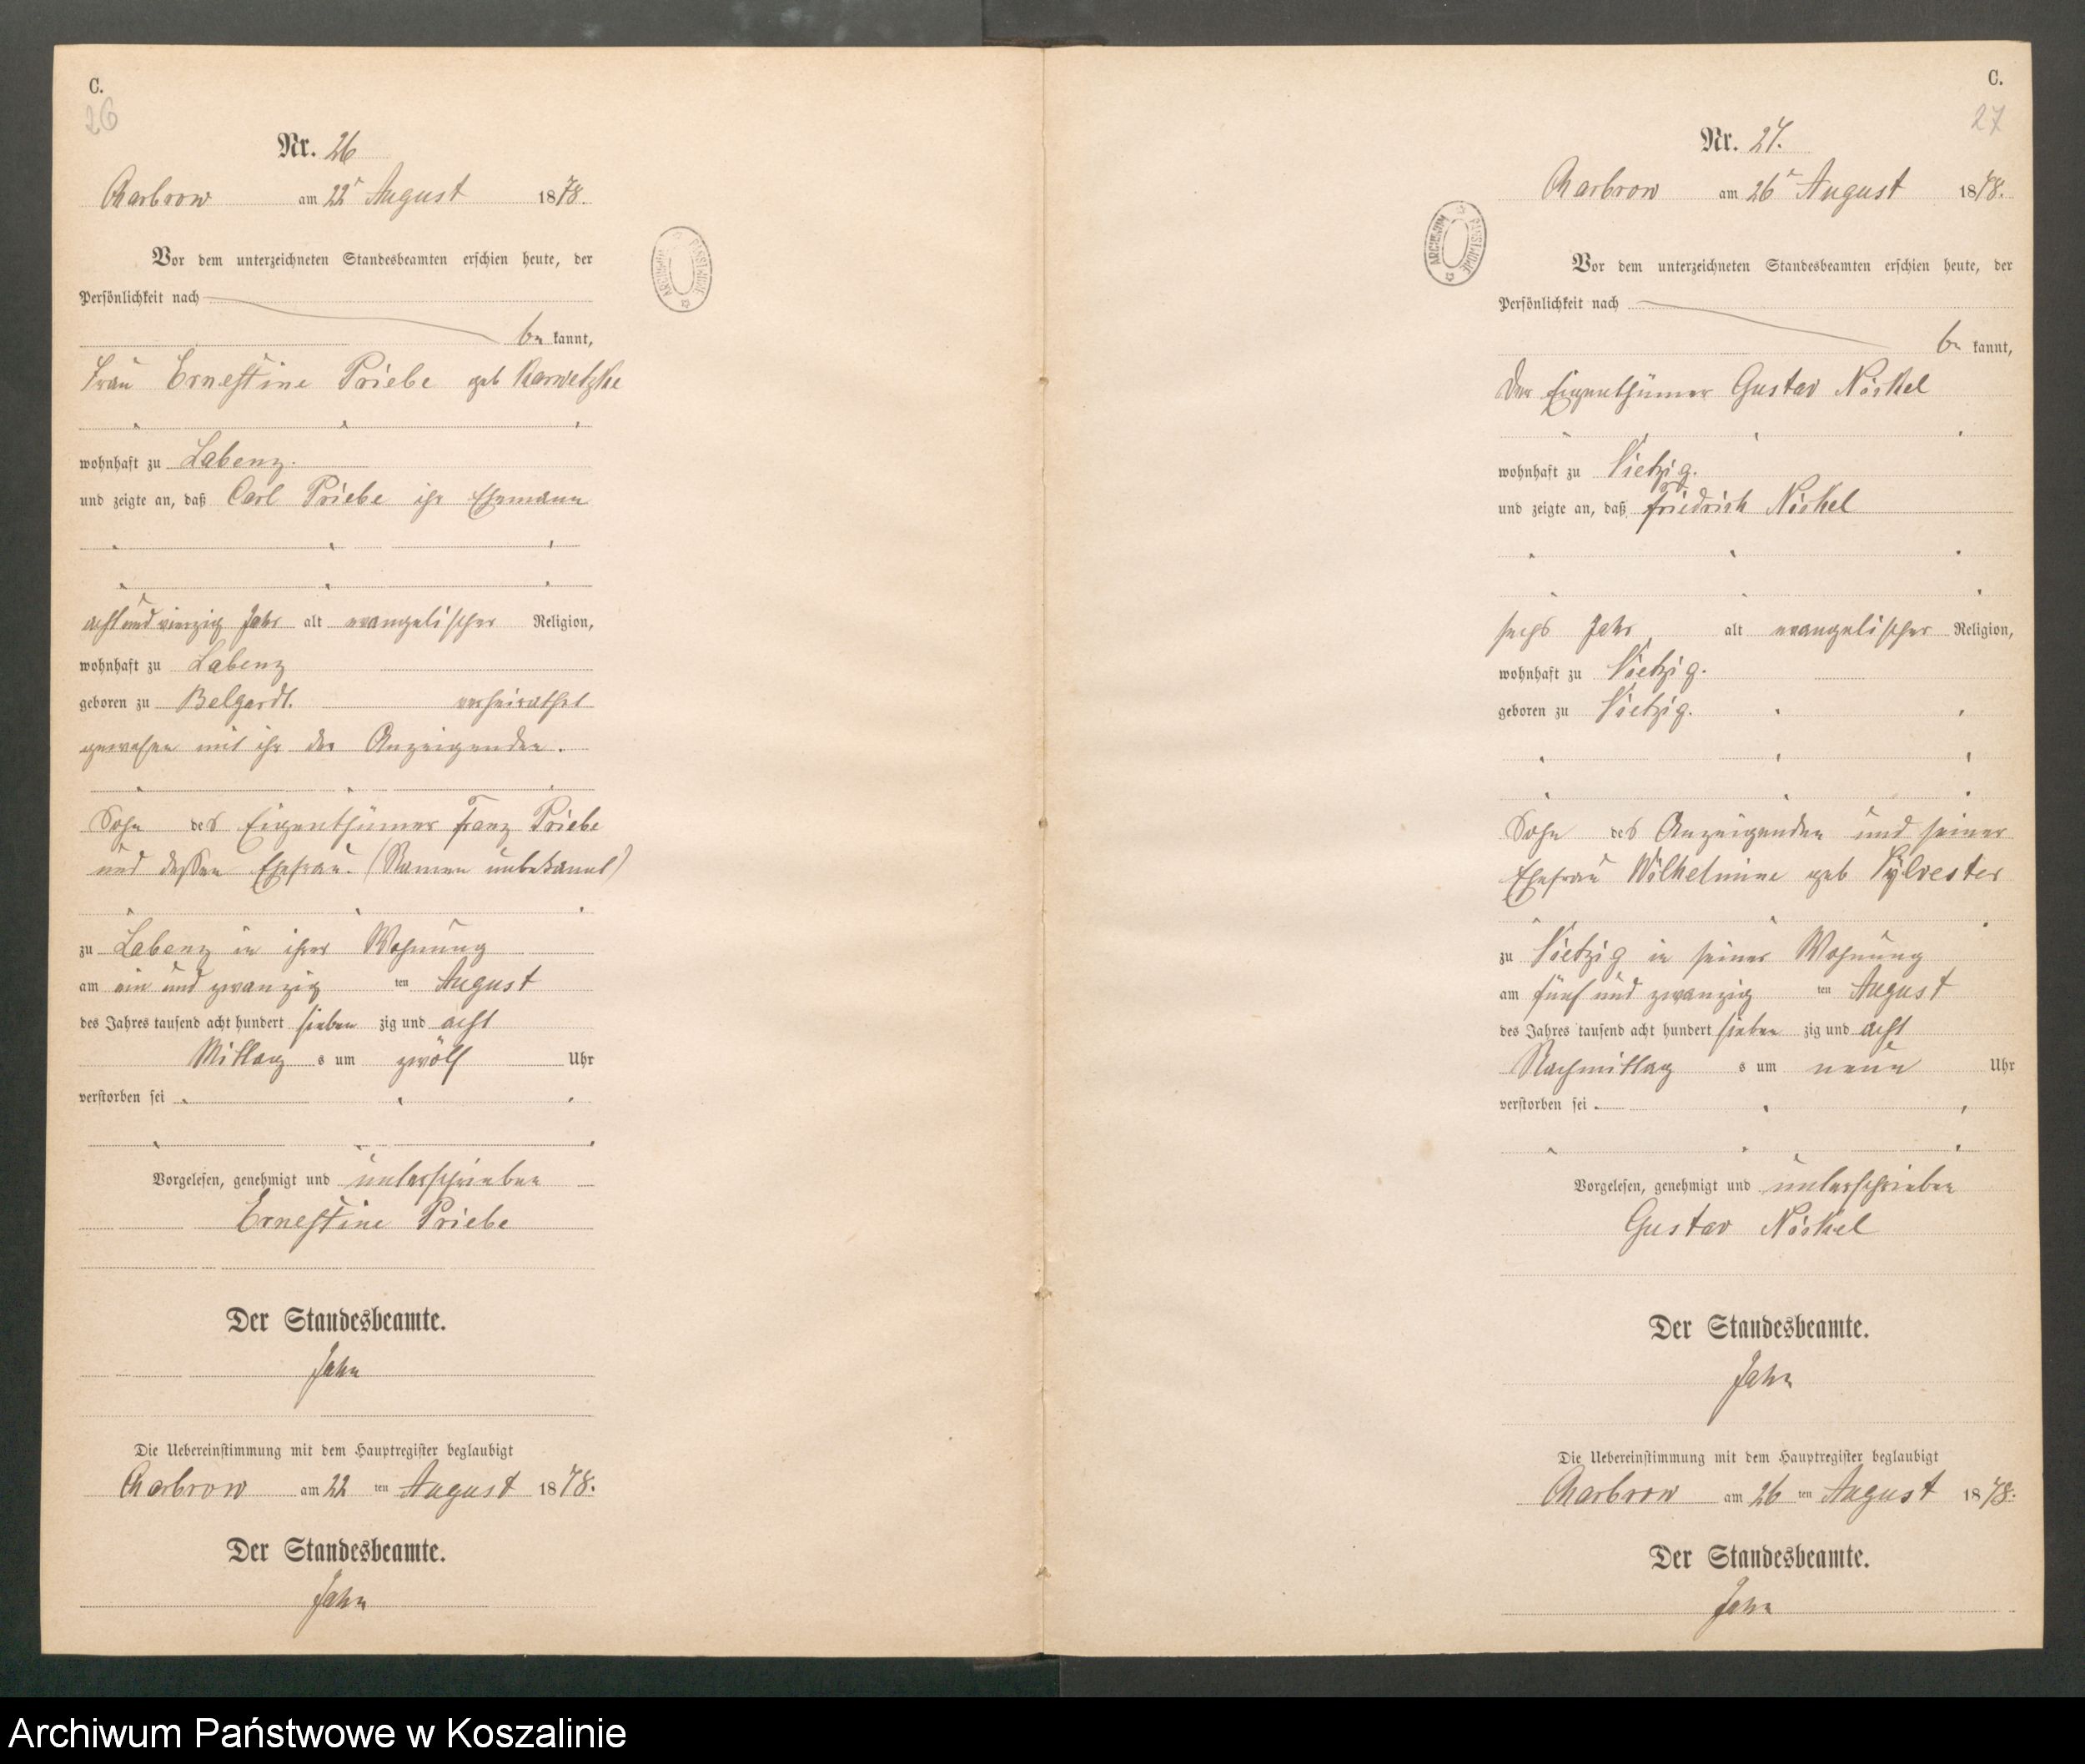 C.
26
Nr. 26
Charbrow am 22t August 1878.
Vor dem unterzeichneten Standesbeamten erschien heute, der
Persönlichkeit nach
be kannt,
Frau Ernestine Priebe geb Karwetzke
wohnhaft zu Labenz.
und zeigte an, daß Carl Priebe ihr Ehemann
acht und vierzig Jahr alt evangelischer Religion,
wohnhaft zu Labenz
geboren zu Belgardt. verheirathet
gewesen mit ihr der Anzeigenden.
Sohn des Eigenthümer Franz Priebe
und dessen Ehefrau. (Namen unbekannt)
zu Labenz in ihrer Wohnung
am ein und zwanzig ten August
des Jahres tausend acht hundert sieben zig und acht
Mittag s um zwölf Uhr
verstorben sei
Vorgelesen, genehmigt und unterschrieben
Ernestine Priebe
Der Standesbeamte.
Jahn
Die Uebereinstimmung mit dem Hauptregister beglaubigt
Charbrow am 22 ten August 1878.
Der Standesbeamte.
Jahn
C.
27
Nr. 27.
Charbrow am 26t August 1878.
ARCHIWUM PAŃSTWOWE
Vor dem unterzeichneten Standesbeamten erschien heute, der
Persönlichkeit nach
be kannt,
Der Eigenthümer Gustav Nöskel
wohnhaft zu Vietzig.
und zeigte an, daß Friedrich Nöskel
sechs Jahr alt evangelischer Religion,
wohnhaft zu Vietzig.
geboren zu Vietzig.
Sohn des Anzeigenden und seiner
Ehefrau Wilhelmine geb Sylvester
zu Vietzig in seiner Wohnung
am fünf und zwanzig ten August
des Jahres tausend acht hundert sieben zig und acht
Nachmittag s um neun Uhr
verstorben sei
Vorgelesen, genehmigt und unterschrieben
Gustav Nöskel
Der Standesbeamte.
Jahn
Die Uebereinstimmung mit dem Hauptregister beglaubigt
Charbrow am 26 ten August 1878.
Der Standesbeamte.
Jahn
Archiwum Państwowe w Koszalinie